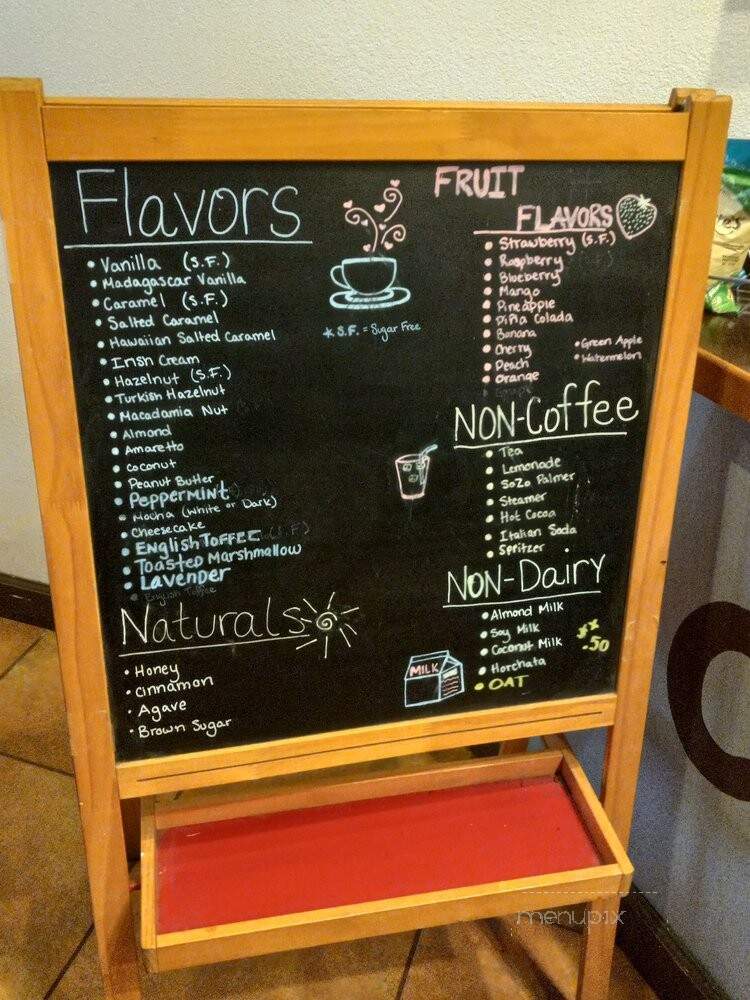 Flavors
• Vanilla (S.F.)
• Madagascar Vanilla
• Caramel (S.F.)
• Salted Caramel
• Hawaiian Salted Caramel
• Irish Cream
• Hazelnut (S.F.)
• Turkish Hazelnut
• Macadamia Nut
• Almond
• Amaretto
• Coconut
• Peanut Butter
• PEPPERMINT
• Mocha (White or Dark)
• Cheesecake
• ENGLISH TOFFEE (S.F.)
• TOASTED MARSHMALLOW
• LAVENDER
• English Toffee
Naturals
• Honey
• Cinnamon
• Agave
• Brown Sugar
* S.F. = Sugar Free
FRUIT
FLAVORS
• Strawberry (S.F.)
• Raspberry
• Blueberry
• Mango
• Pineapple
• Piña Colada
• Banana
• Cherry
• Peach
• Orange
• Green Apple
• Watermelon
NON-Coffee
• Tea
• Lemonade
• SoZo Palmer
• Steamer
• Hot Cocoa
• Italian Soda
• Spritzer
NON-Dairy
• Almond Milk
• Soy Milk
• Coconut Milk
• Horchata
• OAT
.50
MILK
menupix